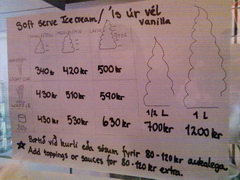 Soft serve Ice cream / Ís úr vél
Vanilla
340kr 420kr 500kr
430kr 510kr 590kr
430kr 530kr 630kr
1/2 L 1 L
700kr 1200kr
Bættu við kurli eða sósum fyrir 80-120 kr aukalega.
Add toppings or sauces for 80-120 kr extra.